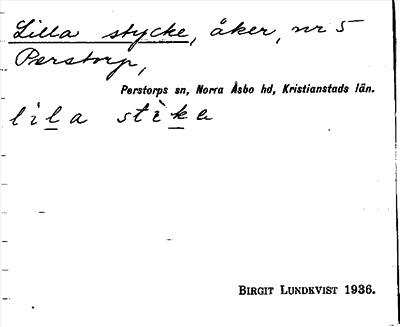 Lilla stycke, åker, nr 5
Perstorp,
Perstorps sn, Norra Åsbo hd, Kristianstads län.
lila stìka
BIRGIT LUNDKVIST 1936.